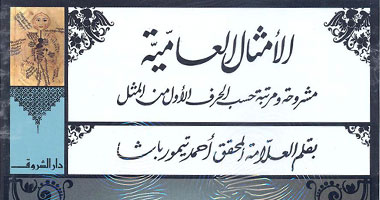 الأمثال العامية
مشروحة ومرتبة حسب الحرف الأول من المثل
بقلم العلامة المحقق أحمد تيمور باشا
دار الشروق